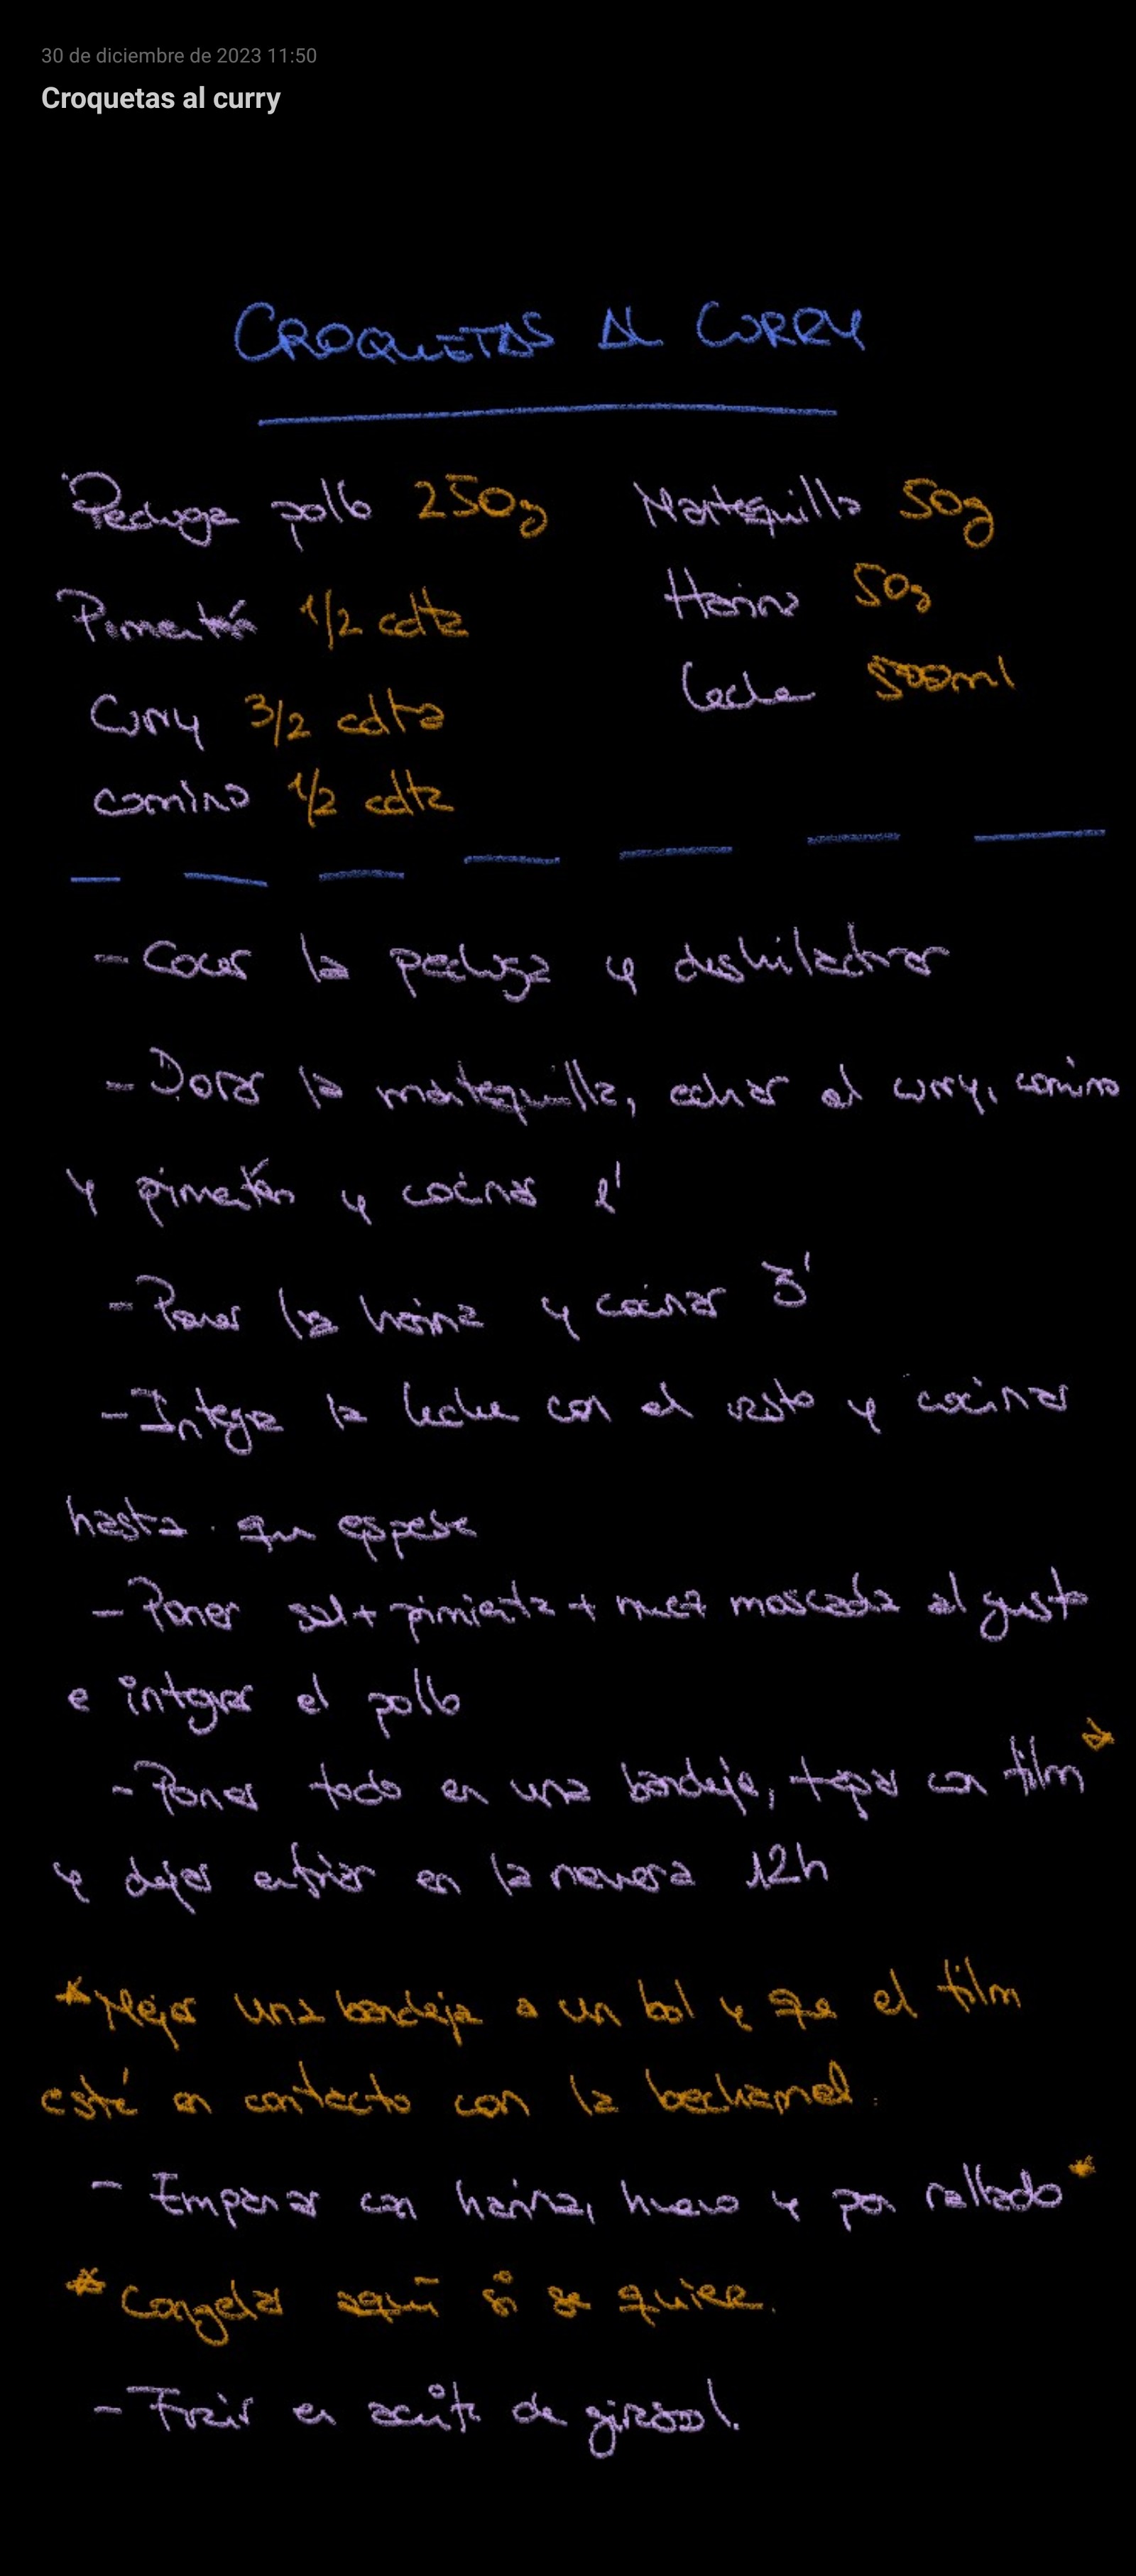 30 de diciembre de 2023 11:50
Croquetas al curry
CROQUETAS AL CURRY
Pechuga pollo 250g Mantequilla 50g
Pimentón 1/2 cdta Harina 50g
Curry 3/2 cdta Leche 500ml
comino 1/2 cdta
- Cocer la pechuga y deshilachar
- Dorar la mantequilla, echar el curry, comino
y pimentón y cocinar 1'
- Poner la harina y cocinar 3'
- Integrar la leche con el resto y cocinar
hasta que espese
- Poner sal + pimienta + nuez moscada al gusto
e integrar el pollo
- Poner todo en una bandeja, tapar con film *
y dejar enfriar en la nevera 12h
* Mejor una bandeja a un bol y que el film
esté en contacto con la bechamel.
- Empanar con harina, huevo y pan rallado *
* Congelar aquí si se quiere.
- Freír en aceite de girasol.